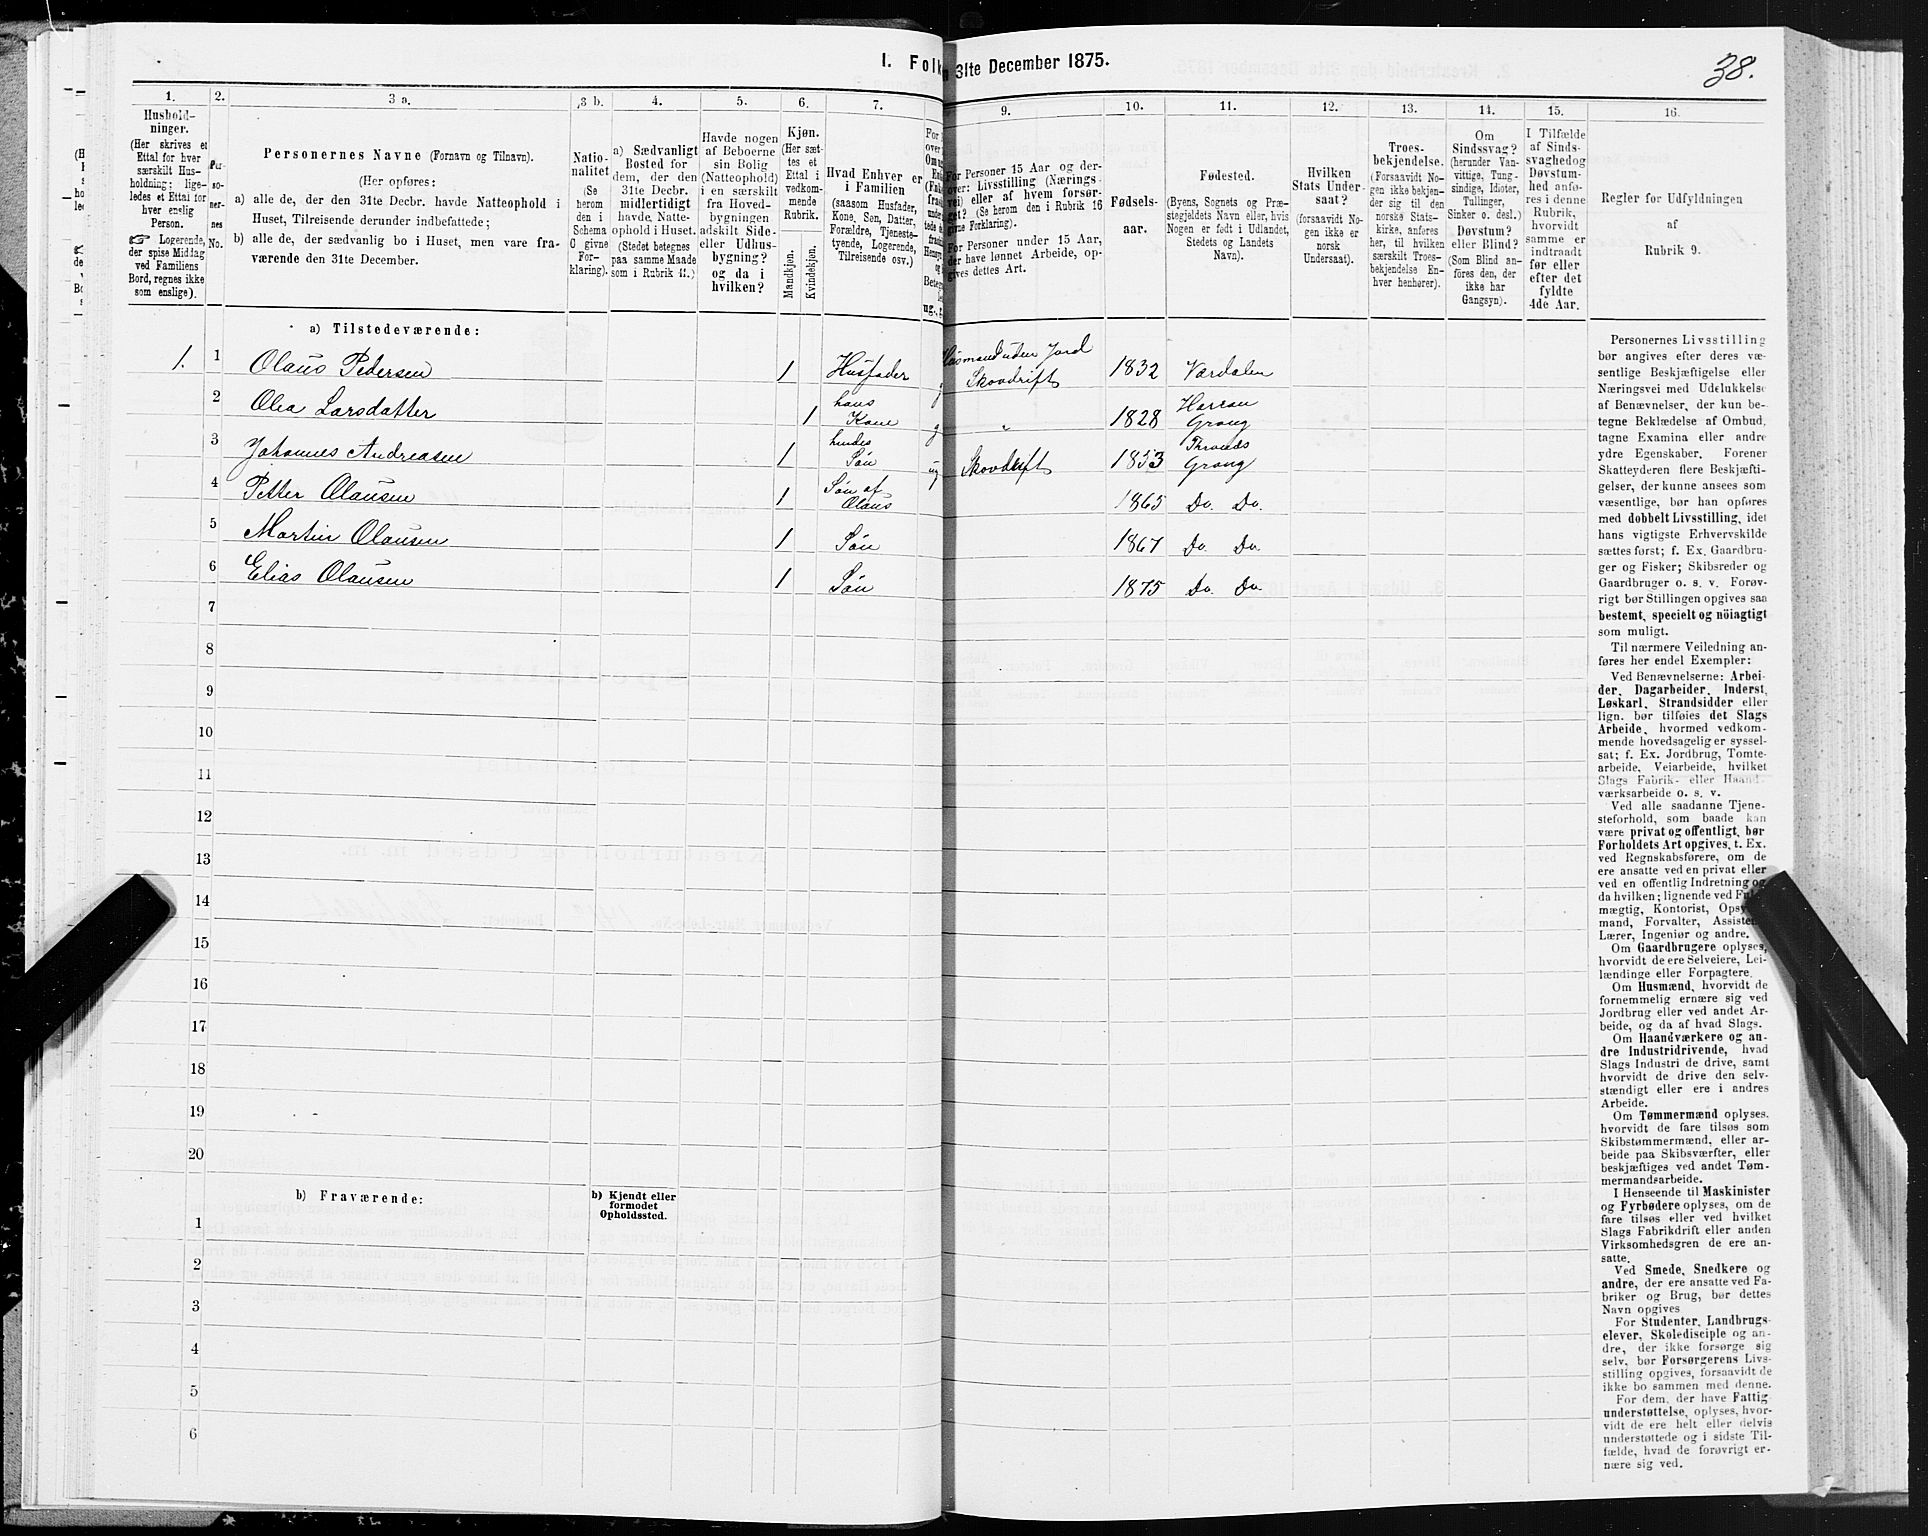 I. Folk
31te December 1875.
38.
1. 2. 3 a. 3 b. 4. 5. 6. 7. 9. 10. 11. 12. 13. 14. 15. 16.
Hushold-
ninger.
(Her skrives et
Ettal for hver
særskilt Hus-
holdning; lige-
ledes et Ettal for
hver enslig
Person.
☞ Logerende,
der spise Middag
ved Familiens
Bord, regnes ikke
som enslige).
Per-
so-
ner-
nes
No.
Personernes Navne (Fornavn og Tilnavn).
(Her opføres:
a) alle de, der den 31te Decbr. havde Natteophold i
Huset, Tilreisende derunder indbefattede;
b) alle de, der sædvanlig bo i Huset, men vare fra-
værende den 31te December.
Natio-
nalitet
(Se
herom
den i
Schema
C givne
For-
klaring).
a) Sædvanligt
Bosted for
dem, der den
31te Decbr.
midlertidigt
havde Natte-
ophold i Huset.
(Stedet betegnes
paa samme Maade
som i Rubrik 11.)
Havde nogen
af Beboerne
sin Bolig
(Natteophold)
i en særskilt
fra Hoved-
bygningen
adskilt Side-
eller Udhus-
bygning?
og da i
hvilken?
Kjøn.
(Her sæt-
tes et
Ettal i
vedkom-
mende
Rubrik.
Mandkjøn.
Kvindekjøn.
Hvad Enhver er
i Familien
(saasom Husfader,
Kone, Søn, Datter,
Forældre, Tjeneste-
tyende, Logerende,
Tilreisende osv.)
For Personer 15 Aar og der-
over: Livsstilling (Nærings-
vei) eller af hvem forsør-
get? (Se herom den i Rubrik 16
givne Forklaring).
For Personer under 15 Aar,
der have lønnet Arbeide, op-
gives dettes Art.
Fødsels-
aar.
Fødested.
(Byens, Sognets og Præ-
stegjeldets Navn eller, hvis
Nogen er født i Udlandet,
Stedets og Landets
Navn).
Hvilken
Stats Under-
saat?
(forsaavidt No-
gen ikke er
norsk
Undersaat).
Troes-
bekjendelse.
(Forsaavidt No-
gen ikke bekjen-
der sig til den
norske Stats-
kirke, anføres
her, til hvilken
særskilt Troes-
bekjendelse En-
hver henhører).
Om
Sindssvag?
(herunder Van-
vittige, Tung-
sindige, Idioter,
Tullinger,
Sinker o. desl.)
Døvstum?
eller Blind?
(Som Blind an-
føres den, der
ikke har
Gangsyn).
I Tilfælde
af Sinds-
svaghedog
Døvstum-
hed anfø-
res i denne
Rubrik,
hvorvidt
samme er
indtraadt
før eller
efter det
fyldte
4de Aar.
Regler for Udfyldningen
af
Rubrik 9.
a) Tilstedeværende:
1. 1 Olaus Pedersen 1 Husfader Huusmand uden Jord Skovdrift 1832 Værdalen
2 Olea Larsdatter 1 hans Kone g " 1828 Harran Grong
3 Johannes Andreasen 1 hendes Søn ug Skovdrift 1853 Grong
4 Petter Olausen 1 Søn af Olaus 1865 Do. Do.
5 Martin Olausen 1 Søn 1867 Do. Do.
6 Elias Olausen 1 Søn 1875 Do. Do.
7
8
9
10
11
12
13
14
15
16
17
18
19
20
b) Fraværende:
b) Kjendt eller
formodet
Opholdssted.
1
2
3
4
5
6
Personernes Livsstilling
bør angives efter deres væ-
sentlige Beskjæftigelse eller
Næringsvei med Udelukkelse
af Benævnelser, der kun be-
tegne Beklædelse af Ombud,
tagne Examina eller andre
ydre Egenskaber. Forener
Skatteyderen flere Beskjæfti-
gelser, der kunne ansees som
væsentlige, bør han opføres
med dobbelt Livsstilling, idet
hans vigtigste Erhvervskilde
sættes først; f. Ex. Gaardbru-
ger og Fisker; Skibsreder og
Gaardbruger o. s. v. Forøv-
rigt bør Stillingen opgives saa
bestemt, specielt og nöiagtigt
som muligt.
Til nærmere Veiledning an-
føres her endel Exempler:
Ved Benævnelserne: Arbei-
der, Dagarbeider, Inderst,
Løskarl, Strandsidder eller
lign. bør tilføies det Slags
Arbeide, hvormed vedkom-
mende hovedsagelig er syssel-
sat; f. Ex. Jordbrug, Tomte-
arbeide, Veiarbeide, hvilket
Slags Fabrik- eller Haand-
værksarbeide o. s. v.
Ved alle saadanne Tjene-
steforhold, som baade kan
være privat og offentligt, bør
Forholdets Art opgives, t. Ex.
ved Regnskabsførere, om de
ere ansatte ved en privat eller
ved en offentlig Indretning og
da hvilken; lignende ved Fuld-
mægtig, Kontorist, Opsyns-
mand, Forvalter, Assistent,
Lærer, Ingeniør og andre.
Om Gaardbrugere oplyses,
hvorvidt de ere Selveiere, Lei-
lændinge eller Forpagtere.
Om Husmænd, hvorvidt de
fornemmelig ernære sig ved
Jordbrug eller ved andet Ar-
beide, og da af hvad Slags.
Om Haandværkere og an-
dre Industridrivende, hvad
Slags Industri de drive, samt
hvorvidt de drive den selv-
stændigt eller ere i andres
Arbeide.
Om Tømmermænd oplyses.
hvorvidt de fare tilsøs som
Skibstømmermænd, eller ar-
beide paa Skibsværfter, eller
beskjæftiges ved andet Tøm-
mermandsarbeide.
I Henseende til Maskinister
og Fyrbødere oplyses, om de
fare tilsøs eller ved hvilket
Slags Fabrikdrift eller anden
Virksomhedsgren de ere an-
satte.
Ved Smede, Snedkere og
andre, der ere ansatte ved Fa-
briker og Brug, bør dettes
Navn opgives
For Studenter, Landbrugs-
elever, Skoledisciple og an-
dre, der ikke forsørge sig
selv, bør Forsørgerens Livs-
stilling opgives, forsaavidt de
ikke bo sammen med denne.
For dem, der have Fattig-
understøttelse, oplyses, hvor-
vidt de ere helt eller delvis
understøttede og i sidste Til-
fælde, hvad de forøvrigt er-
nære sig ved.